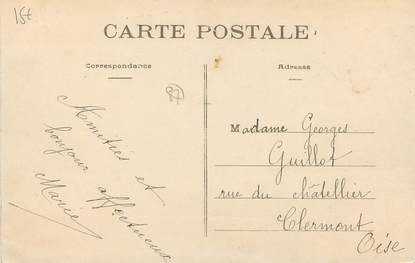 15t
CARTE POSTALE
Correspondance
Adresse
Amitiés et
bonjour affectueux
Marie
Madame Georges
Guillot
rue du châtellier
Clermont
Oise